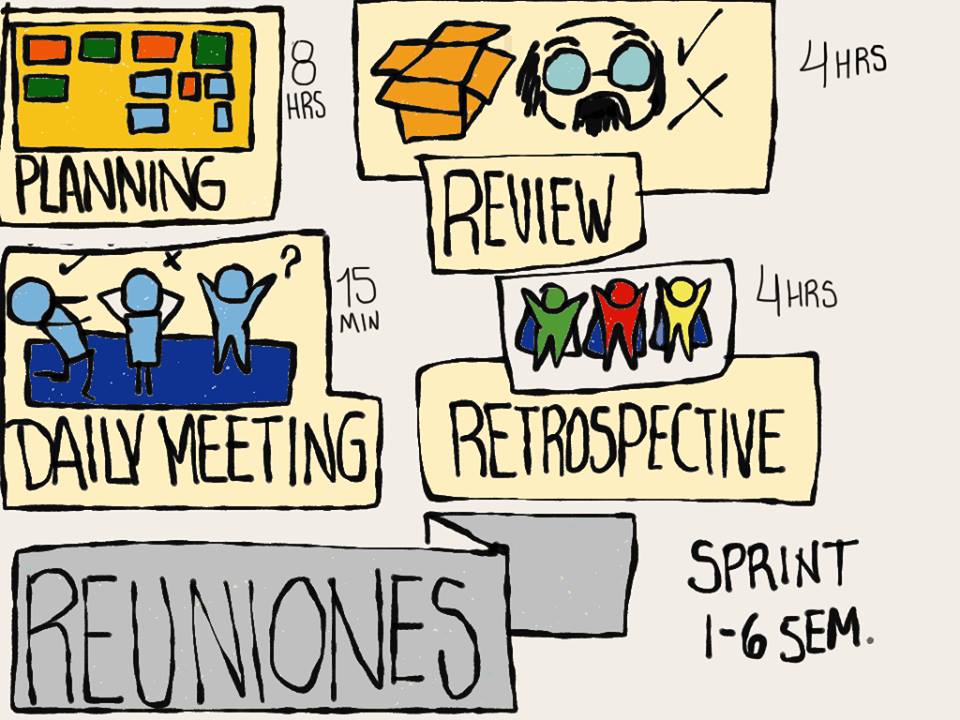 8
HRS
PLANNING
4HRS
REVIEW
?
15
MIN
DAILY MEETING
4HRS
RETROSPECTIVE
REUNIONES
SPRINT
1-6 SEM.